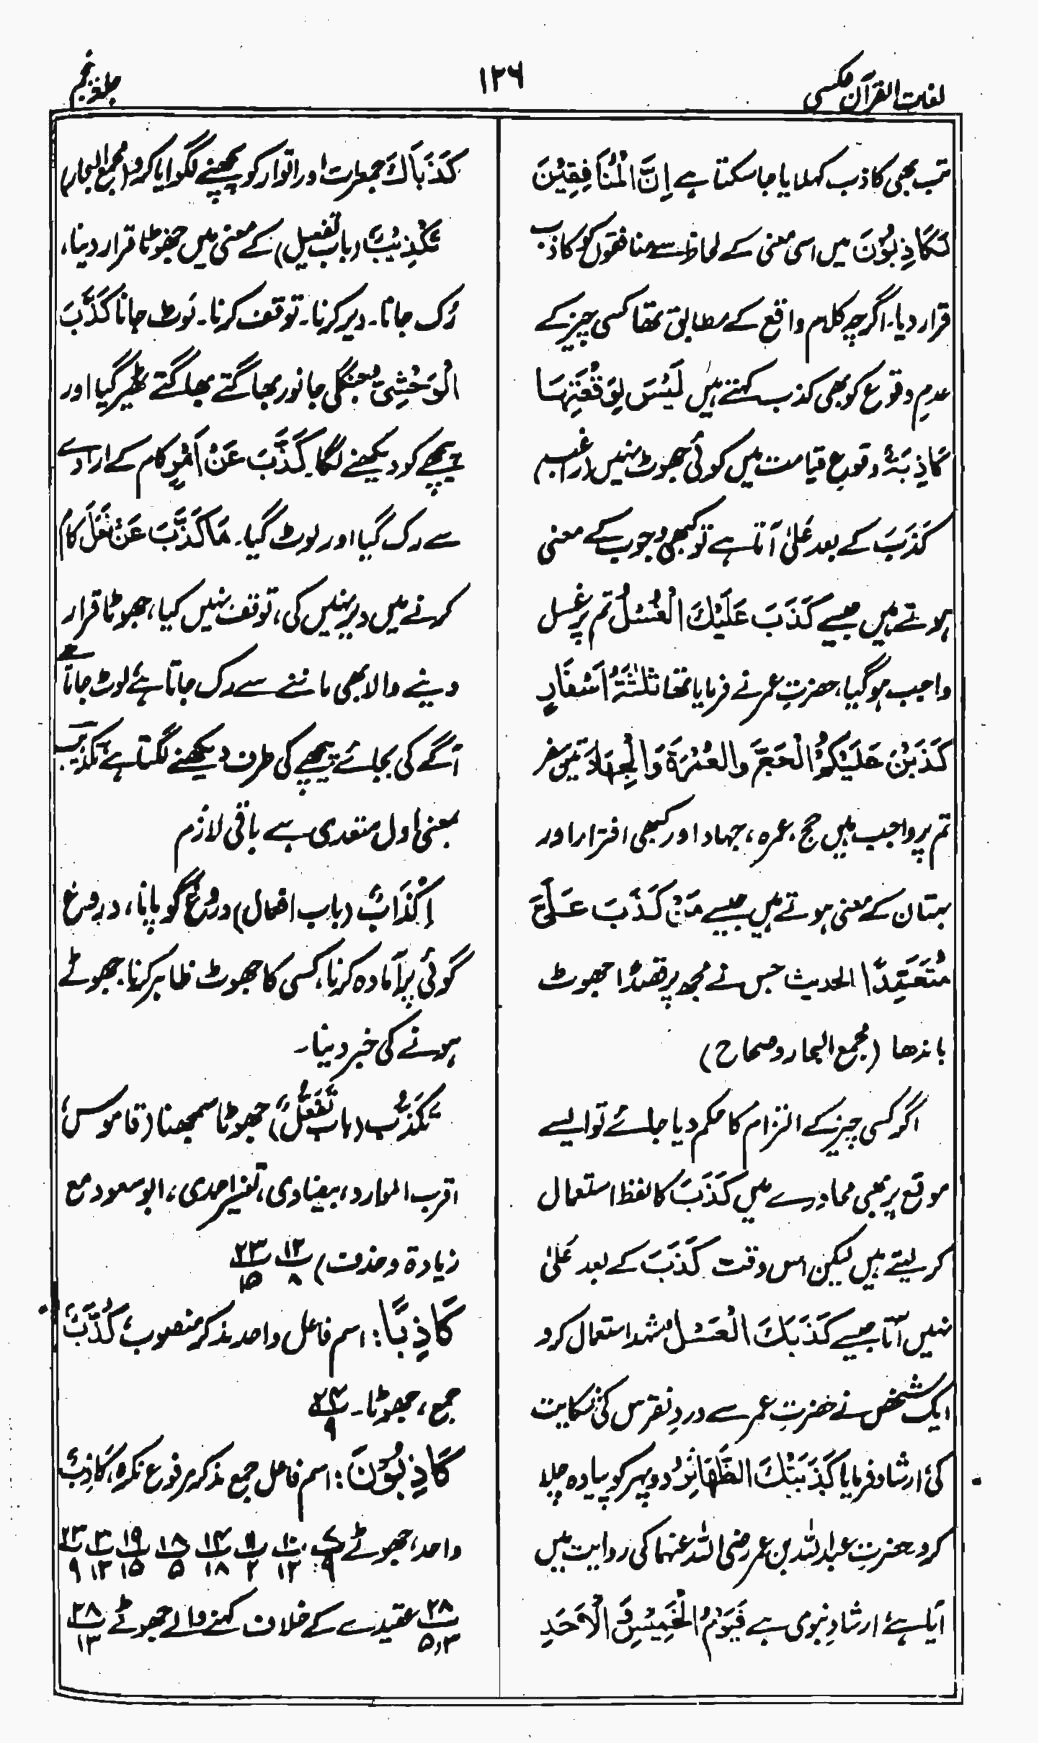 لغات القرآن عکسی
۱۲۶
جلد پنجم
تب بھی کاذب کہلایا جا سکتا ہے اِنَّ الْمُنَافِقِیْنَ
لَکَاذِبُوْنَ میں اسی معنی کے لحاظ سے منافقوں کو کاذب
قرار دیا۔ اگرچہ کلام واقع کے مطابق تھا کسی چیز کے
عدمِ وقوع کو بھی کذب کہتے ہیں لَیْسَ لِوَقْعَتِہَا
کَاذِبَۃٌ وقوعِ قیامت میں کوئی جھوٹ نہیں (راغب)
کَذَبَ کے بعد عَلٰی آتا ہے تو کبھی وجوب کے معنی
ہوتے ہیں جیسے کَذَبَ عَلَیْكَ الْغُسْلُ تم پر غسل
واجب ہو گیا، حضرت عمر نے فرمایا تھا ثَلٰثَۃُ اَسْفَارٍ
کَذَبْنَ عَلَیْکُمُ الْحَجُّ وَالْعُمْرَۃُ وَالْجِہَادُ تین سفر
تم پر واجب ہیں حج، عمرہ، جہاد اور کبھی افترار اور
بہتان کے معنی ہوتے ہیں جیسے مَنْ کَذَبَ عَلَیَّ
مُتَعَمِّدًا الحدیث جس نے مجھ پر قصدًا جھوٹ
باندھا (مجمع البحار و صحاح)
اگر کسی چیز کے التزام کا حکم دیا جائے تو ایسے
موقع پر بھی محاورے میں کَذَبَ کا لفظ استعمال
کر لیتے ہیں لیکن اس وقت کَذَبَ کے بعد عَلٰی
نہیں آتا جیسے کَذَبَكَ الْعَسْلُ شہد استعمال کرو
ایک شخص نے حضرتِ عمر سے دردِ نقرس کی شکایت
کی ارشاد فرمایا کَذَبَتْكَ الظَّہَائِرُ دوپہر کو پیادہ چلا
کرو حضرتِ عبداللہ بن عمر رضی اللہ عنہما کی روایت میں
آیا ہے ارشادِ نبوی ہے فَیَوْمُ الْخَمِیْسِ وَ الْاَحَدِ
کَذَبَاكَ جمعرات اور اتوار کو پچھنے لگوایا کرو (مجمع البحار)
تَکْذِیْبٌ (باب تفعیل) کے معنی ہیں جھوٹا قرار دینا،
رُک جانا۔ دیر کرنا۔ توقف کرنا۔ لوٹ جانا کَذَّبَ
الْوَحْشِیُّ جنگلی جانور بھاگتے بھاگتے ٹھیر گیا اور
پیچھے کو دیکھنے لگا۔ کَذَّبَ عَنْ اَمْرٍ کام کے ارادے
سے رک گیا اور لوٹ گیا۔ مَا کَذَّبَ عَنْ فَعَلَ کام
کرنے میں دیر نہیں کی، توقف نہیں کیا، جھوٹا قرار
دینے والا بھی ماننے سے رک جاتا ہے لوٹ جاتا ہے
آگے کی بجائے پیچھے کی طرف دیکھنے لگتا ہے تکذیب
بمعنی اول متعدی ہے باقی لازم
اِکْذَابٌ (باب افعال) دروغ گو پانا، دروغ
گوئی پر آمادہ کرنا، کسی کا جھوٹ ظاہر کرنا، جھوٹے
ہونے کی خبر دینا۔
تَکَذُّب (باب تَفَعُّلْ) جھوٹا سمجھنا (قاموس،
اقرب الموارد، بیضاوی، تفسیر احمدی، ابو سعود مع
زیادۃ و حذف) ۱۲/۸ ۲۳/۱۵
کَاذِبًا: اسم فاعل واحد مذکر منصوب، کُذَّبٌ
جمع، جھوٹا۔ ۲۴/۹
کَاذِبُوْنَ: اسم فاعل جمع مذکر مرفوع نکرہ، کَاذِبٌ
واحد، جھوٹے ۷/۹ ۱۰/۱۲ ۹/۲ ۱۴/۱۸ ۱۸/۵ ۱۹/۱۵ ۳۰/۱۲ ۲۳/۹
۲۸/۵،۳ عقیدے کے خلاف کہنے والے جھوٹے ۲۸/۱۳